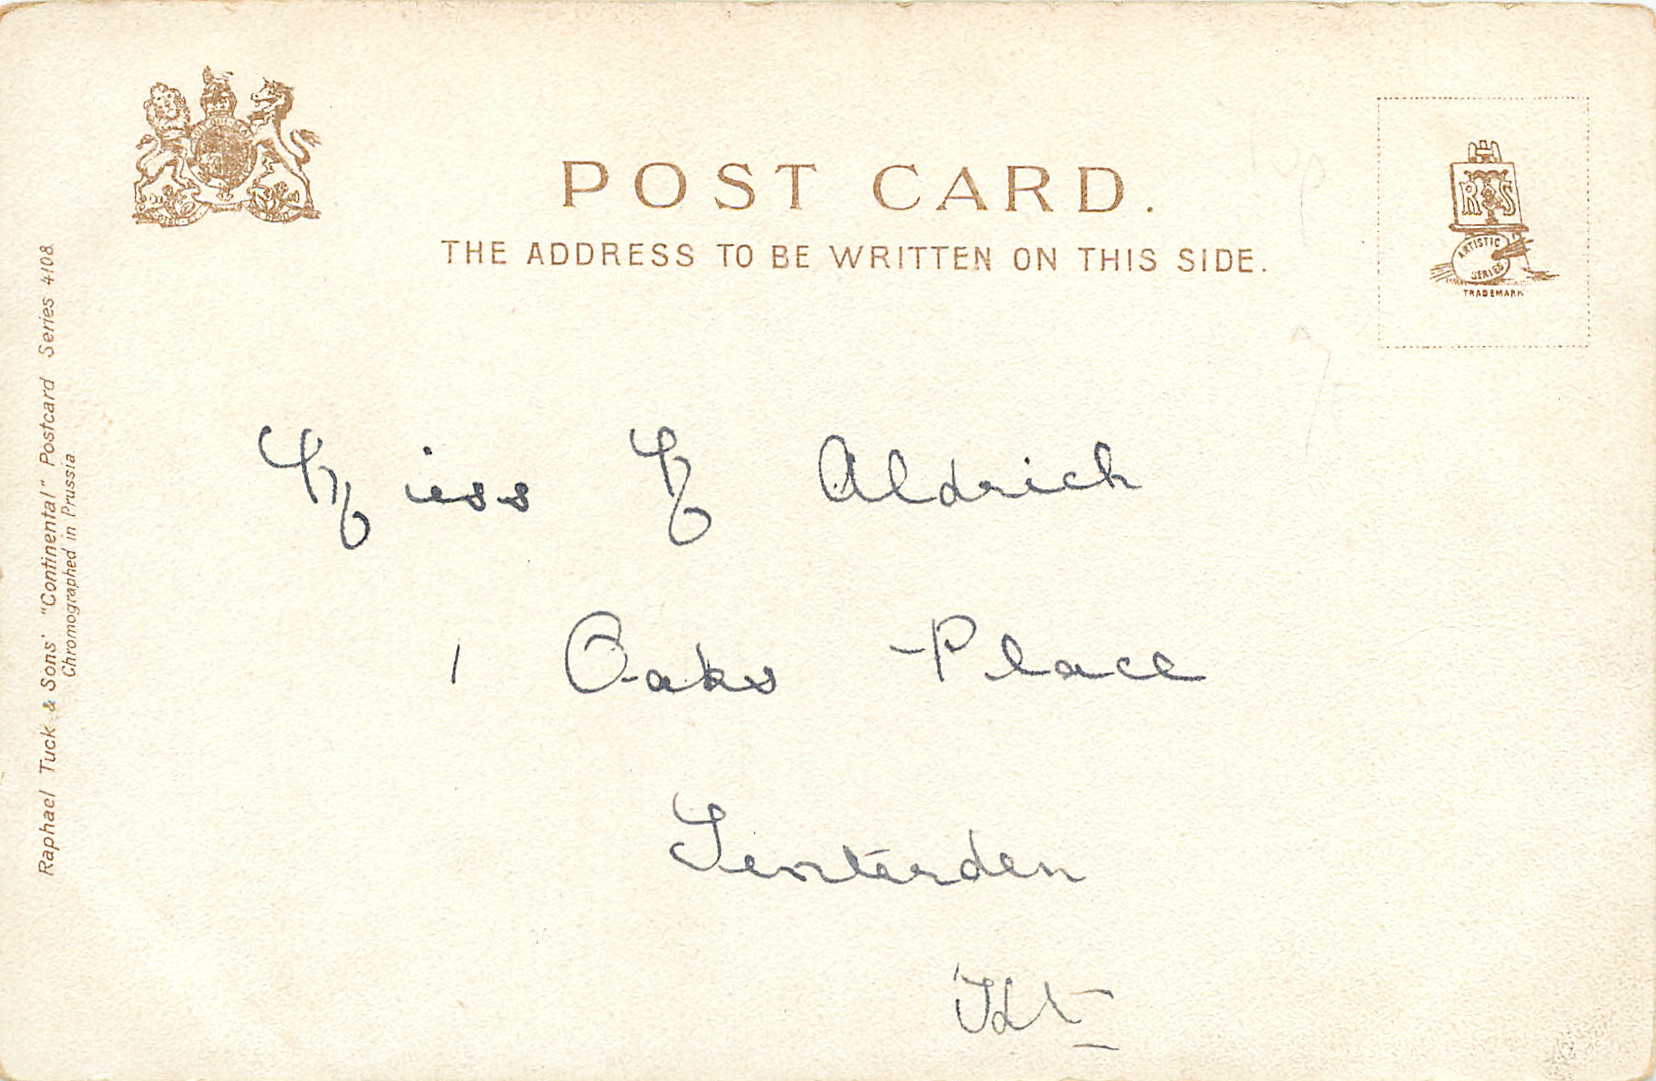 POST CARD.
THE ADDRESS TO BE WRITTEN ON THIS SIDE.
R T & S
ARTISTIC
SERIES
TRADEMARK
Raphael Tuck & Sons' "Continental" Postcard Series 4108.
Chromographed in Prussia.
Miss Aldrich
1 Oaks Place
Tenterden